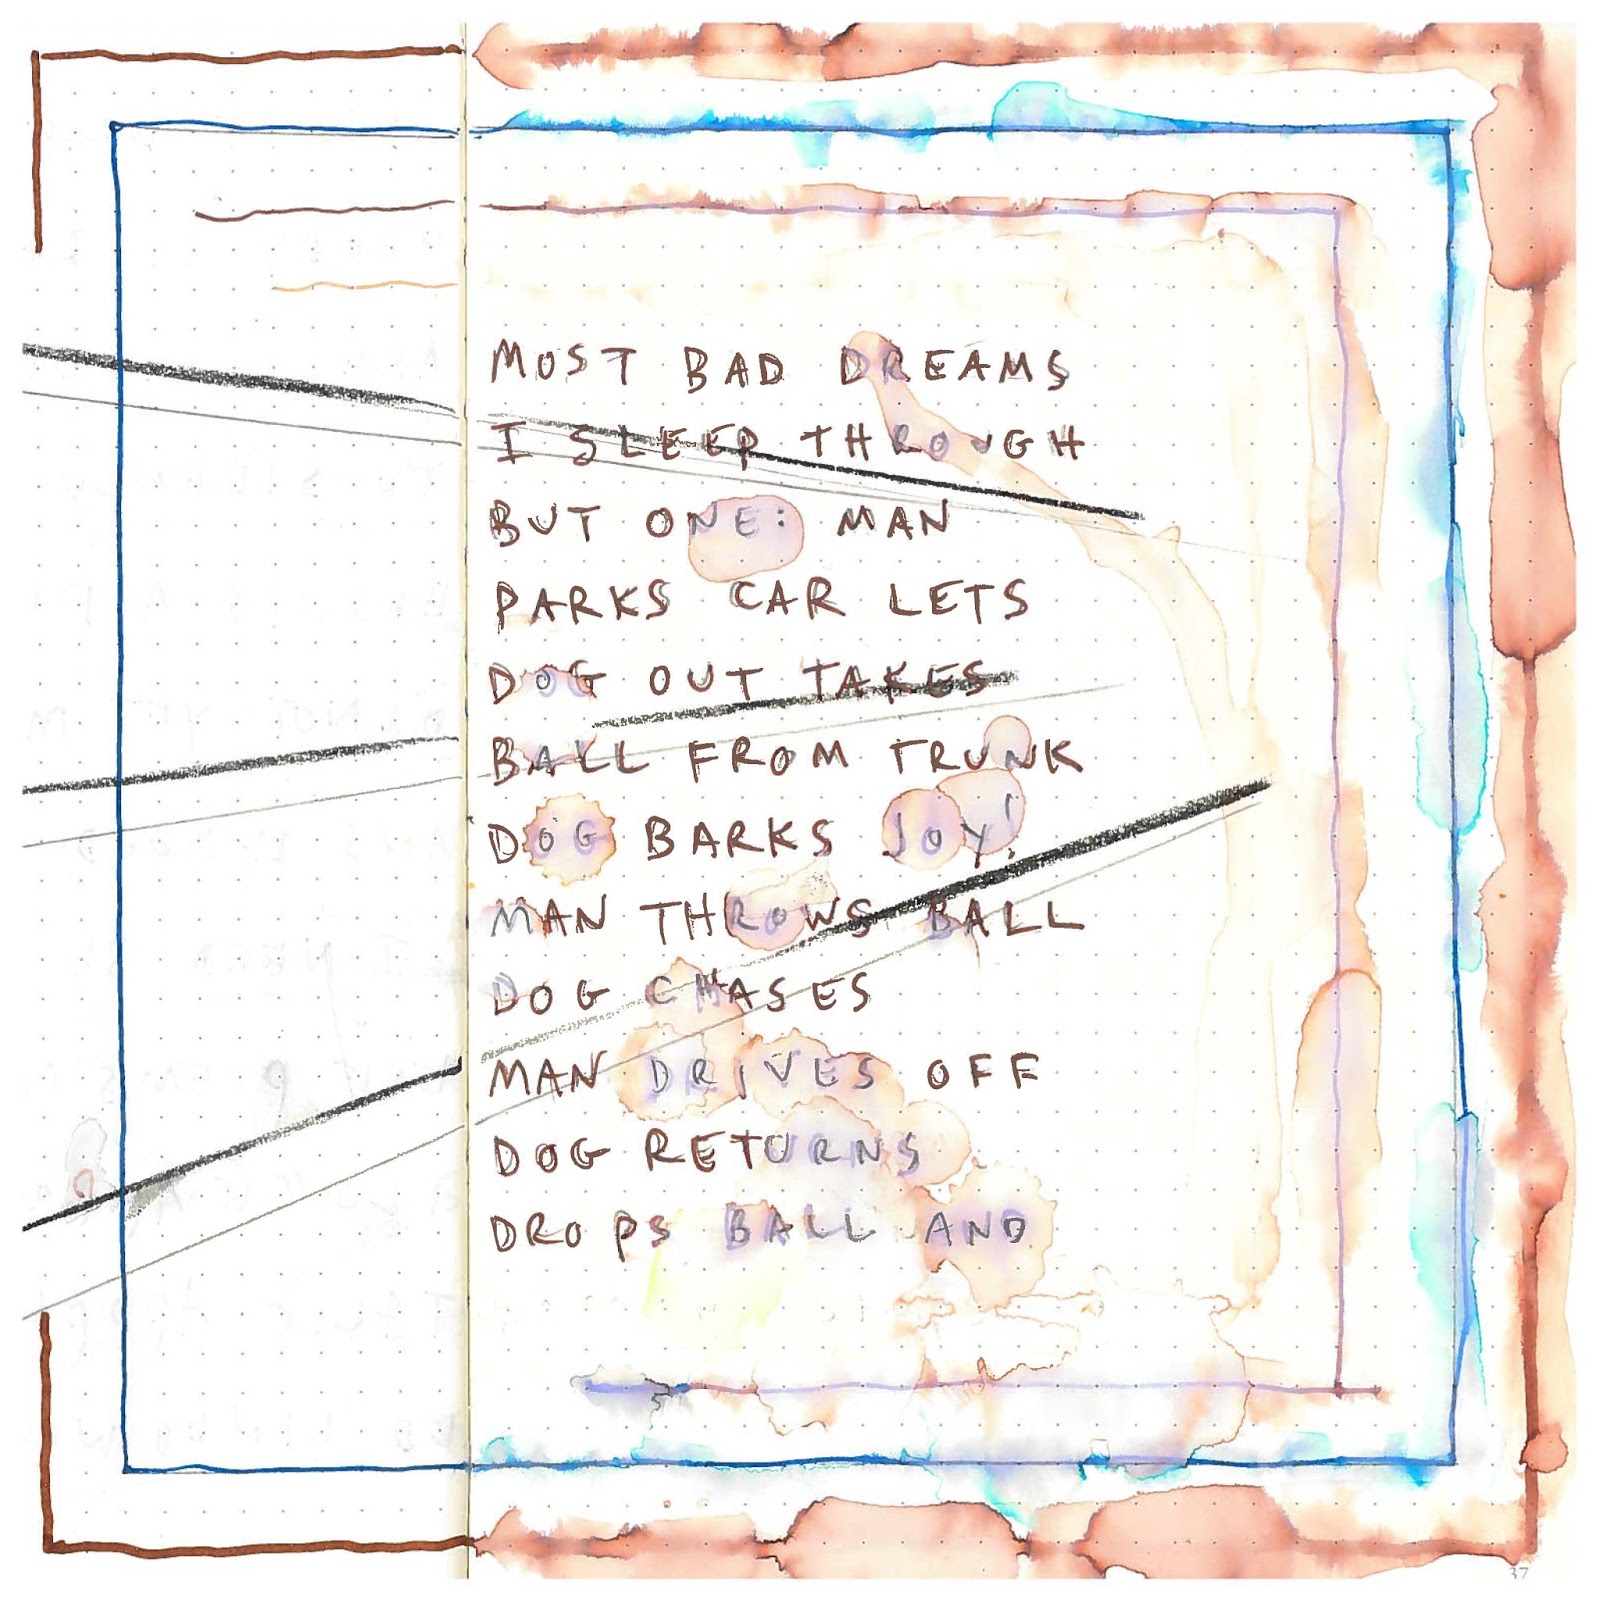 MOST BAD DREAMS
I SLEEP THROUGH
BUT ONE: MAN
PARKS CAR LETS
DOG OUT TAKES
BALL FROM TRUNK
DOG BARKS JOY!
MAN THROWS BALL
DOG CHASES
MAN DRIVES OFF
DOG RETURNS
DROPS BALL AND
37